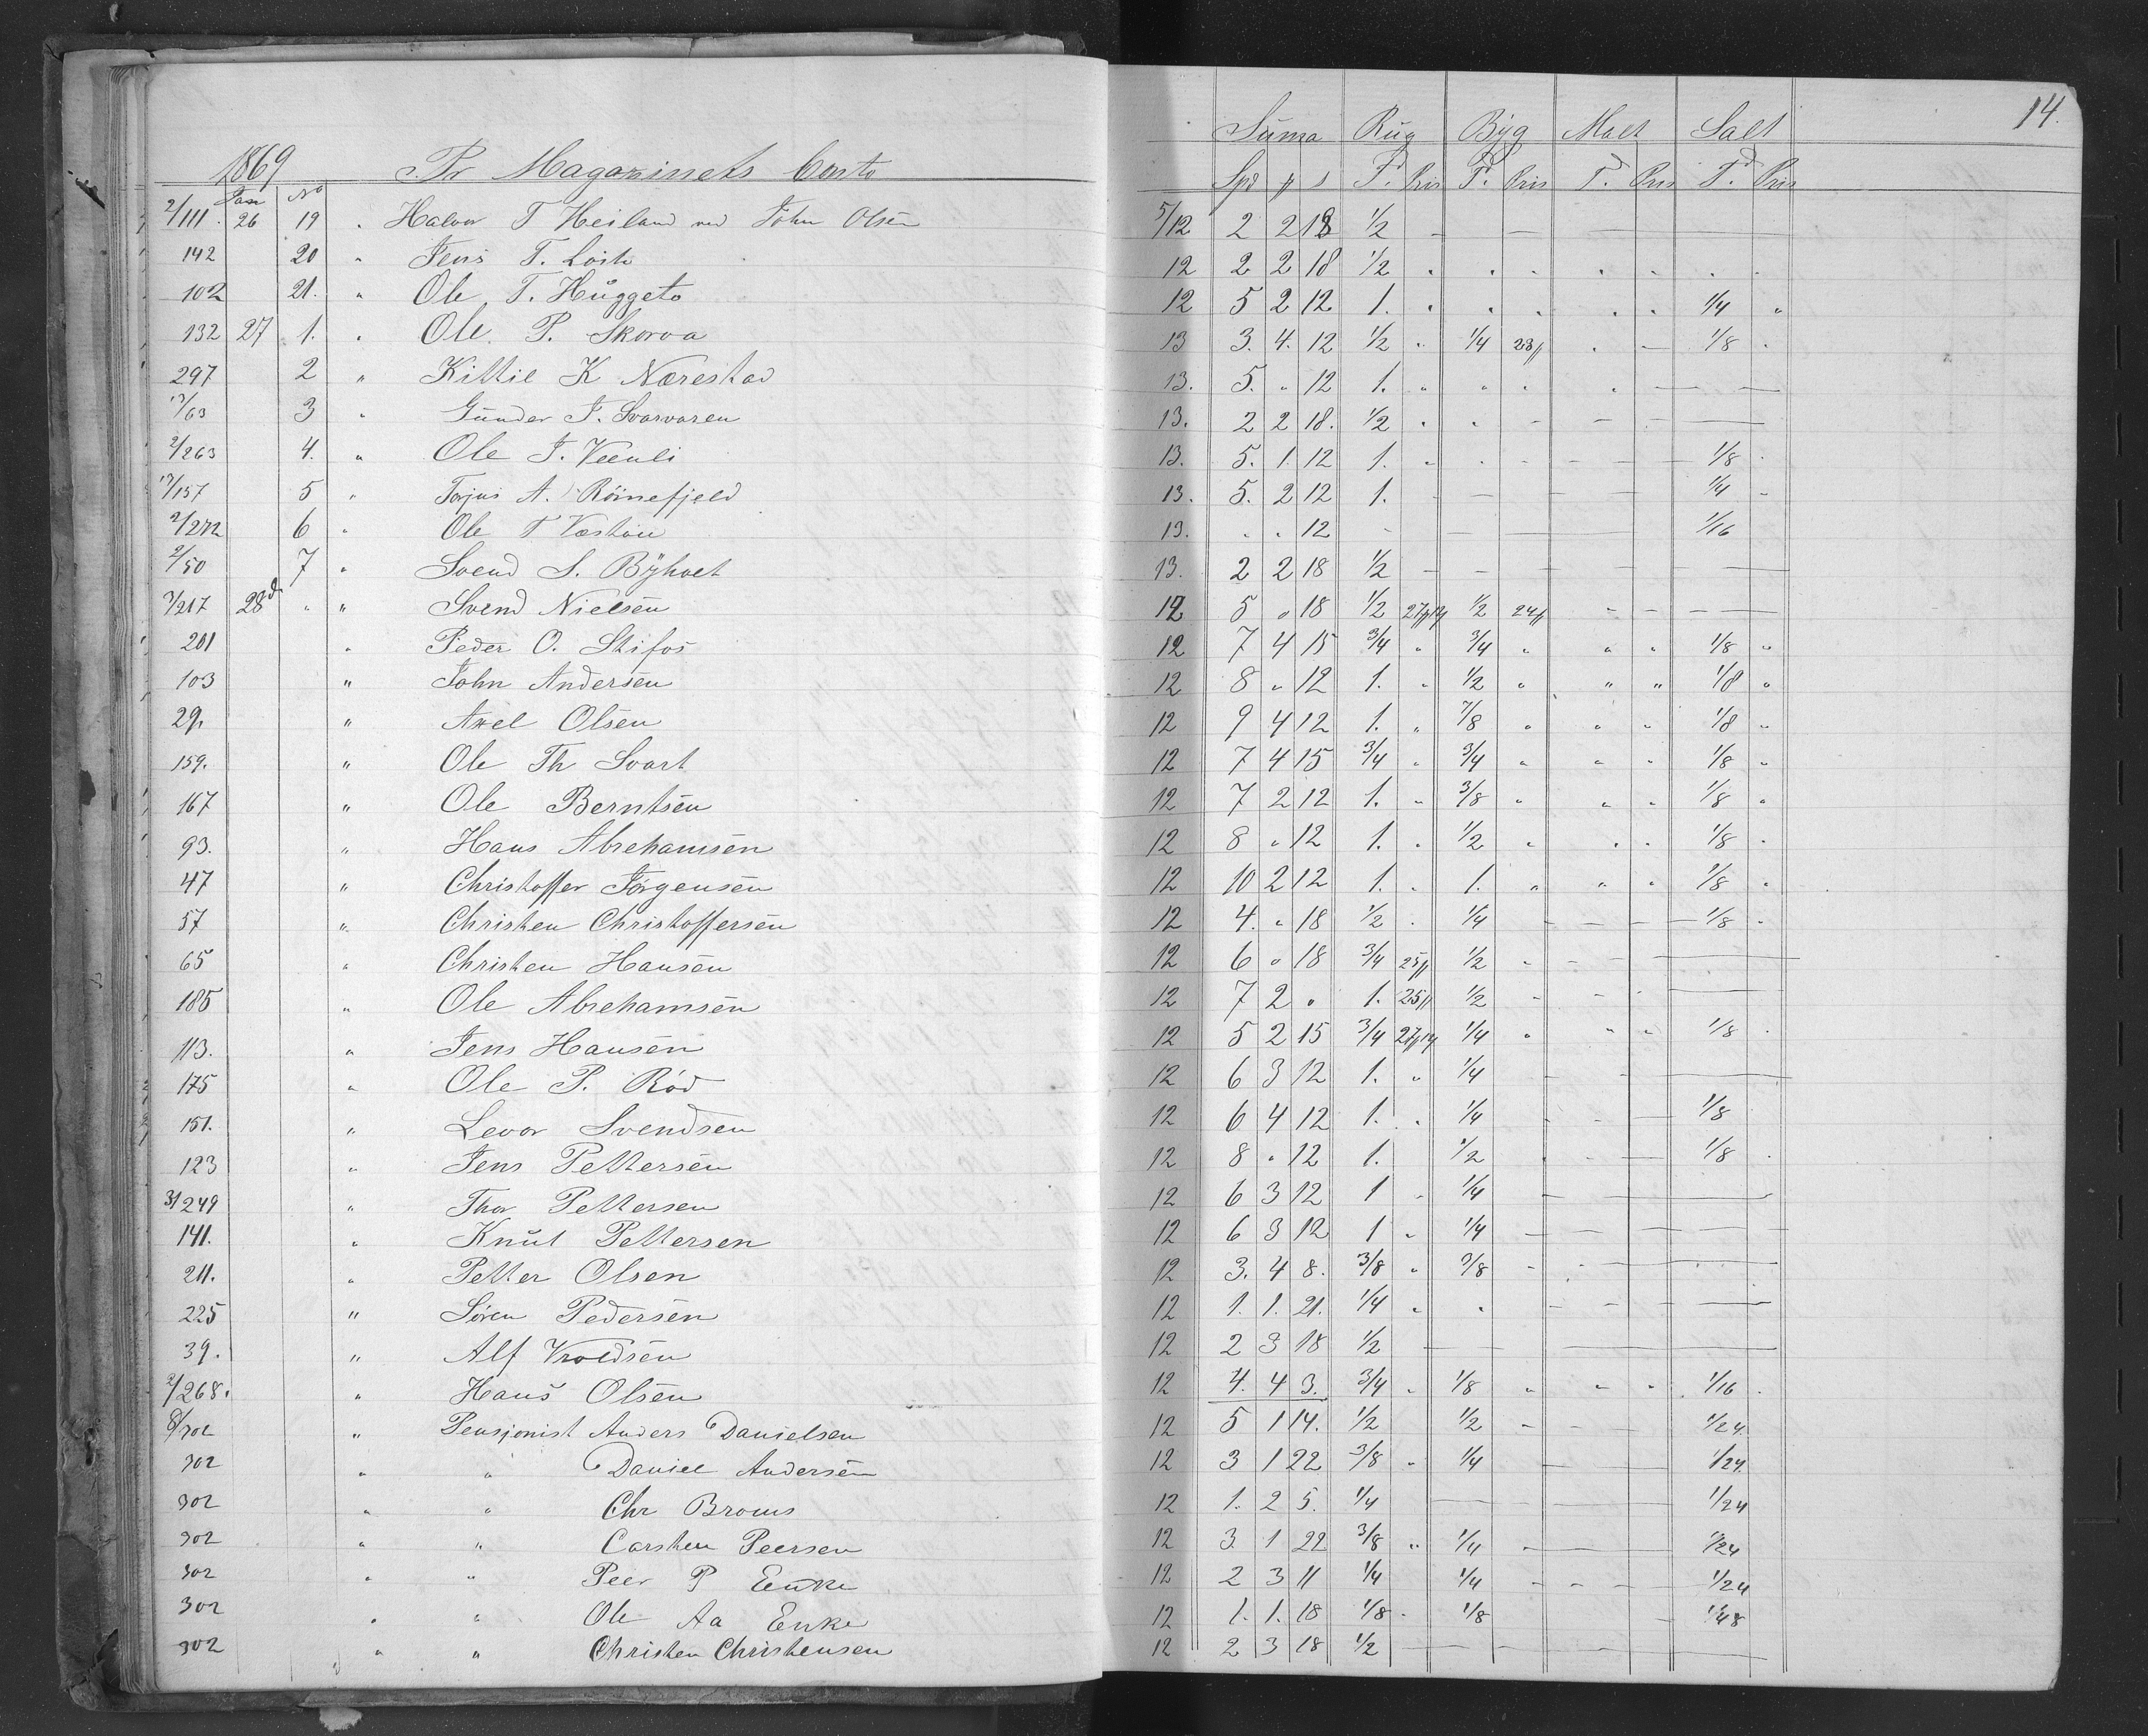 14.
Suma Rug Byg Malt Salt
1869 Pr Magazinets Conto Spd β s T. Pris T. Pris T. Pris T. Pris
Jan No
2/111. 26 19 " Halvor T Heiland ved John Olsen 5/12 2 2 18 1/2 — — —
142 20 " Jens T. 12 2 2 18 1/2 " " " " " " "
102 21. " Ole T. Huggeto 12 5 2 12 1. " " " " " 1/4 "
132 27 1. " Ole P. Skorva 13 3. 4. 12 1/2 " 1/4 23β " — 1/8 "
297 2 " Kittil K Nærestad 13. 5. " 12 1. " " " " — —
13/63 3 " Gunder J. Svarvaren 13. 2 2 18. 1/2 " " — — — —
2/263 4. " Ole J. Veenli 13. 5. 1. 12 1. " " — — — 1/8 "
13/157 5 " Torjus A. Röinefjeld 13. 5. 2 12 1. — — — — 1/4 "
2/272 6 " Ole T Væstöin 13. " " 12 — — — 1/16
2/50 7 " Svend S. Byholt 13. 2 2 18 1/2 — — — — —
3/217 28d " " Svend Nielsen 12 5 " 18 1/2 27β12 1/2 24β — — —
201 " Peder O. Stifos 12 7 4 15 3/4 " 3/4 " " " 1/8 "
103 " John Andersen 12 8 " 12 1. " 1/2 " " " 1/8 "
29. " Axel Olsen 12 9 4 12 1. " 7/8 " " " 1/8 "
159. " Ole Th Svart 12 7 4 15 3/4 " 3/4 " " " 1/8 "
167 " Ole Berntsen 12 7 2 12 1. " 3/8 " " " 1/8 "
93. " Hans Abrehamsen 12 8 " 12 1. " 1/2 " " " 1/8 "
47 " Christoffer Jörgensen 12 10 2 12 1. " 1. " " " 1/8 "
57 " Christen Christoffersen 12 4. " 18 1/2 " 1/4 — — — 1/8 "
65 " Christen Hansen 12 6 " 18 3/4 25β 1/2 — — —
185 " Ole Abrehamsen 12 7 2 " 1. 25β 1/2 — — —
113. " Jens Hansen 12 5 2 15 3/4 27β12 1/4 " " " 1/8 "
175 " Ole P. Röd 12 6 3 12 1. " 1/4 — — —
151. " Levor Svendsen 12 6 4 12 1. " 1/4 — — — 1/8
123 " Jens Pettersen 12 8 " 12 1. 1/2 — — — 1/8 "
3/249 " Thor Pettersen 12 6 3 12 1 " 1/4 — — —
141. " Knut Pettersen 12 6 3 12 1 " 1/4 — — — —
211. " Petter Olsen 12 3. 4 8. 3/8 " 3/8 — — —
225 " Sören Pedersen 12 1. 1. 21. 1/4 " " — — —
39. " Alf Vroldsen 12 2 3 18 1/2 — — — —
2/268. " Hans Olsen 12 4. 4 3. 3/4 " 1/8 " " " 1/16 "
8/302 " Pensjonist Anders Danielsen 12 5 1 14. 1/2 1/2 — — 1/24.
302 " " Daniel Andersen 12 3 1 22 3/8 " 1/4 — — 1/24.
302 " " Chr Broms 12 1. 2 5. 1/4 — — — 1/24
302 " " Carsten Peersen 12 3. 1 22 3/8 " 1/4 — — 1/24
302 " " Peer P Enke 12 2 3 11 1/4 1/4 — — — 1/24
302 " " Ole Aa Enke 12 1. 1. 18 1/8 " 1/8 — 1/48
302 " " Christen Christensen 12 2 3 18 1/2 — — — —